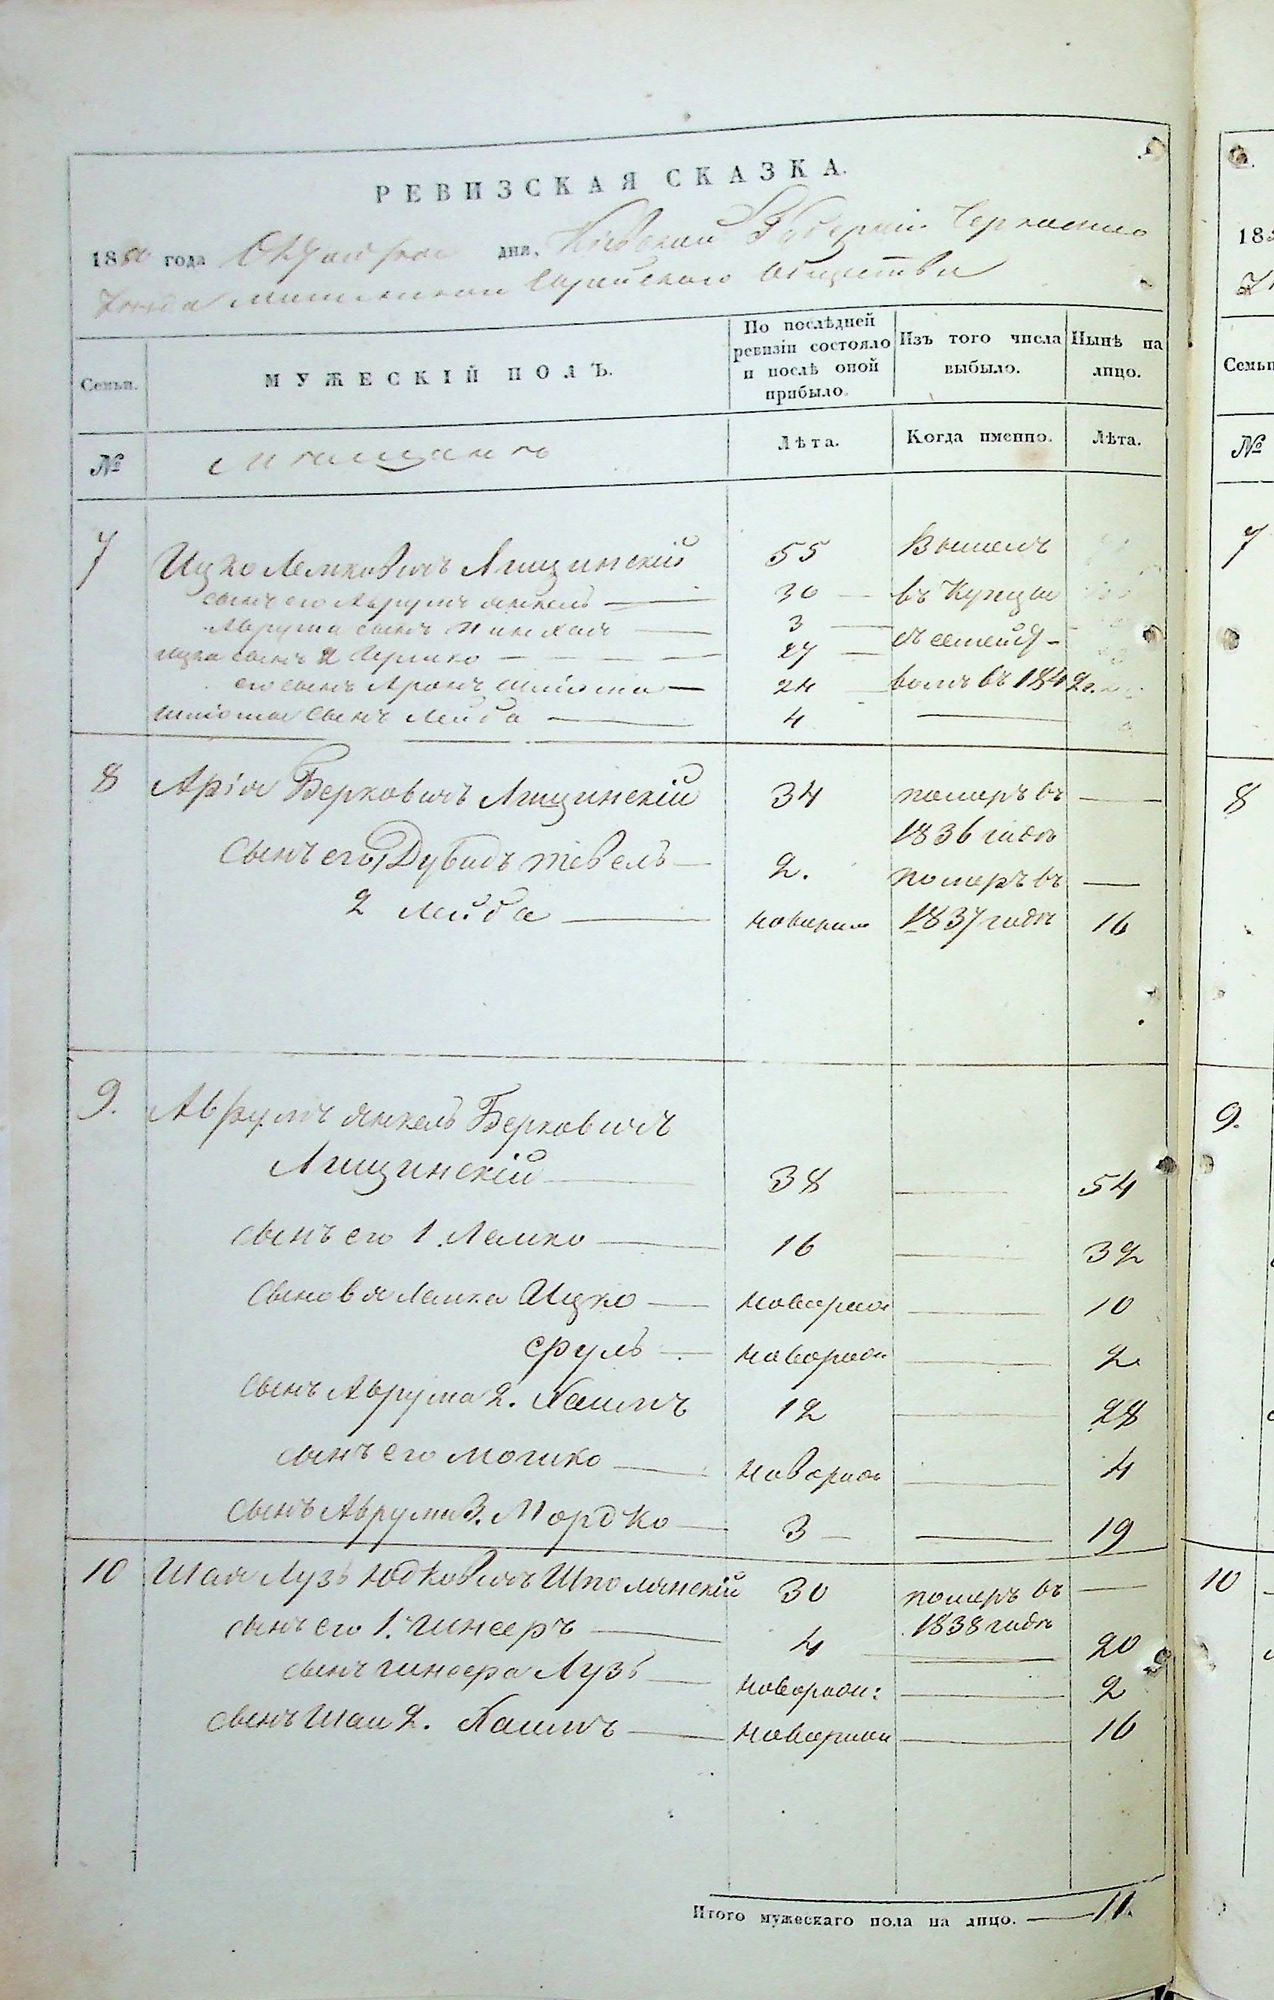 РЕВИЗСКАЯ СКАЗКА.
1850 года Октября дня, Кіевской Губерніи Черкаскаго
Уѣзда Еврейскаго Общества
Семьи.
МУЖЕСКІЙ ПОЛЪ.
По послѣдней ревизіи состояло и послѣ оной прибыло.
Изъ того числа выбыло.
Нынѣ на лицо.
№
Мѣщанъ
Лѣта.
Когда именно.
Лѣта.
7 Ицко Лемковичъ Лищинскій 55 Вышелъ
сынъ его Аврумъ Янкель 30 въ Купцы
Аврума сынъ Пинхас 3 съ семей-
Ицка сынъ 2 Гершко 27
его сынъ Аронъ Шліома 24 вомъ въ 1842
Шліомы сынъ Лейба 4
8 Арія Берковичъ Лищинскій 34 померъ въ
1836 годѣ
сынъ его, Дувидъ Тевель 2. померъ въ
2 Лейба новорож 1837 годѣ 16
9. Аврумъ Янкель Берковичъ
Лищинскій 38 54
сынъ его 1. Лемко 16 32
сыновя Лемка Ицко новорож 10
Сруль новорож 2
сынъ Аврума 2. Хаимъ 12 28
сынъ его Мошко новорож 4
сынъ Аврума 3. Мордко 3 19
10 Шая Лузъ Юдковичъ Шполянскій 30 померъ въ
1838 годѣ
сынъ его 1. Гинсеръ 4 20
сынъ Гинсера Лузъ новорож: 2
сынъ Шаи 2. Хаимъ новорож 16
Итого мужескаго пола на лицо. 11.
185
Семьи
№
7
8
9.
10